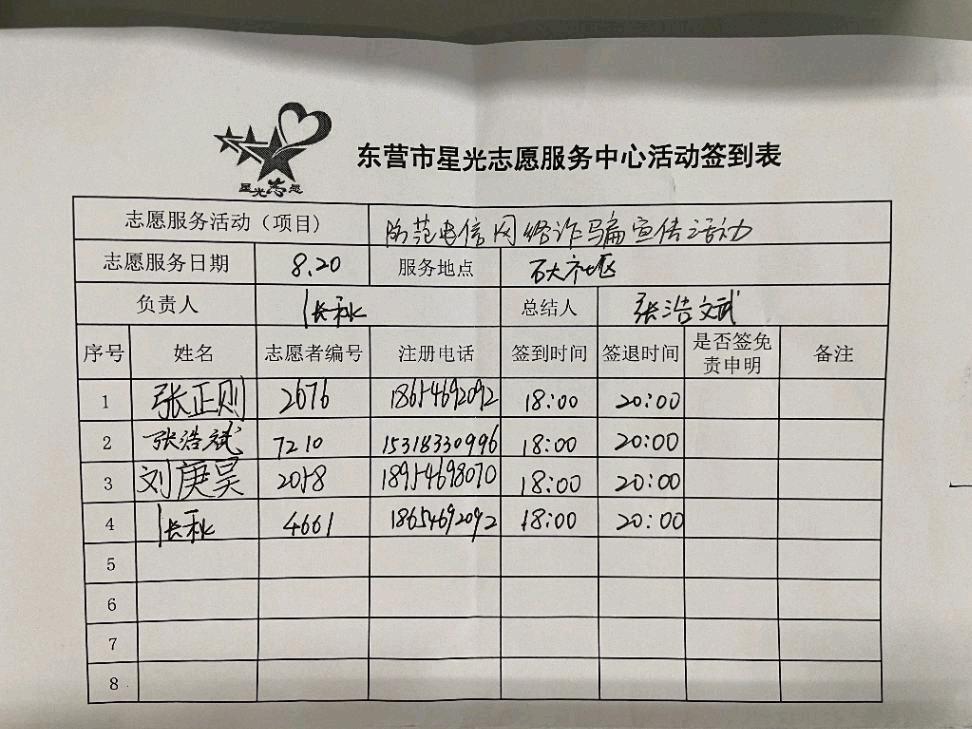 星光志愿
东营市星光志愿服务中心活动签到表
志愿服务活动（项目） 防范电信网络诈骗宣传活动
志愿服务日期 8.20 服务地点 石大社区
负责人 张秋 总结人 张浩斌
序号 姓名 志愿者编号 注册电话 签到时间 签退时间 是否签免责申明 备注
1 张正则 2676 18654692092 18:00 20:00
2 张浩斌 7210 15318330996 18:00 20:00
3 刘庚昊 2058 18954698070 18:00 20:00
4 张秋 4661 18654692092 18:00 20:00
5
6
7
8